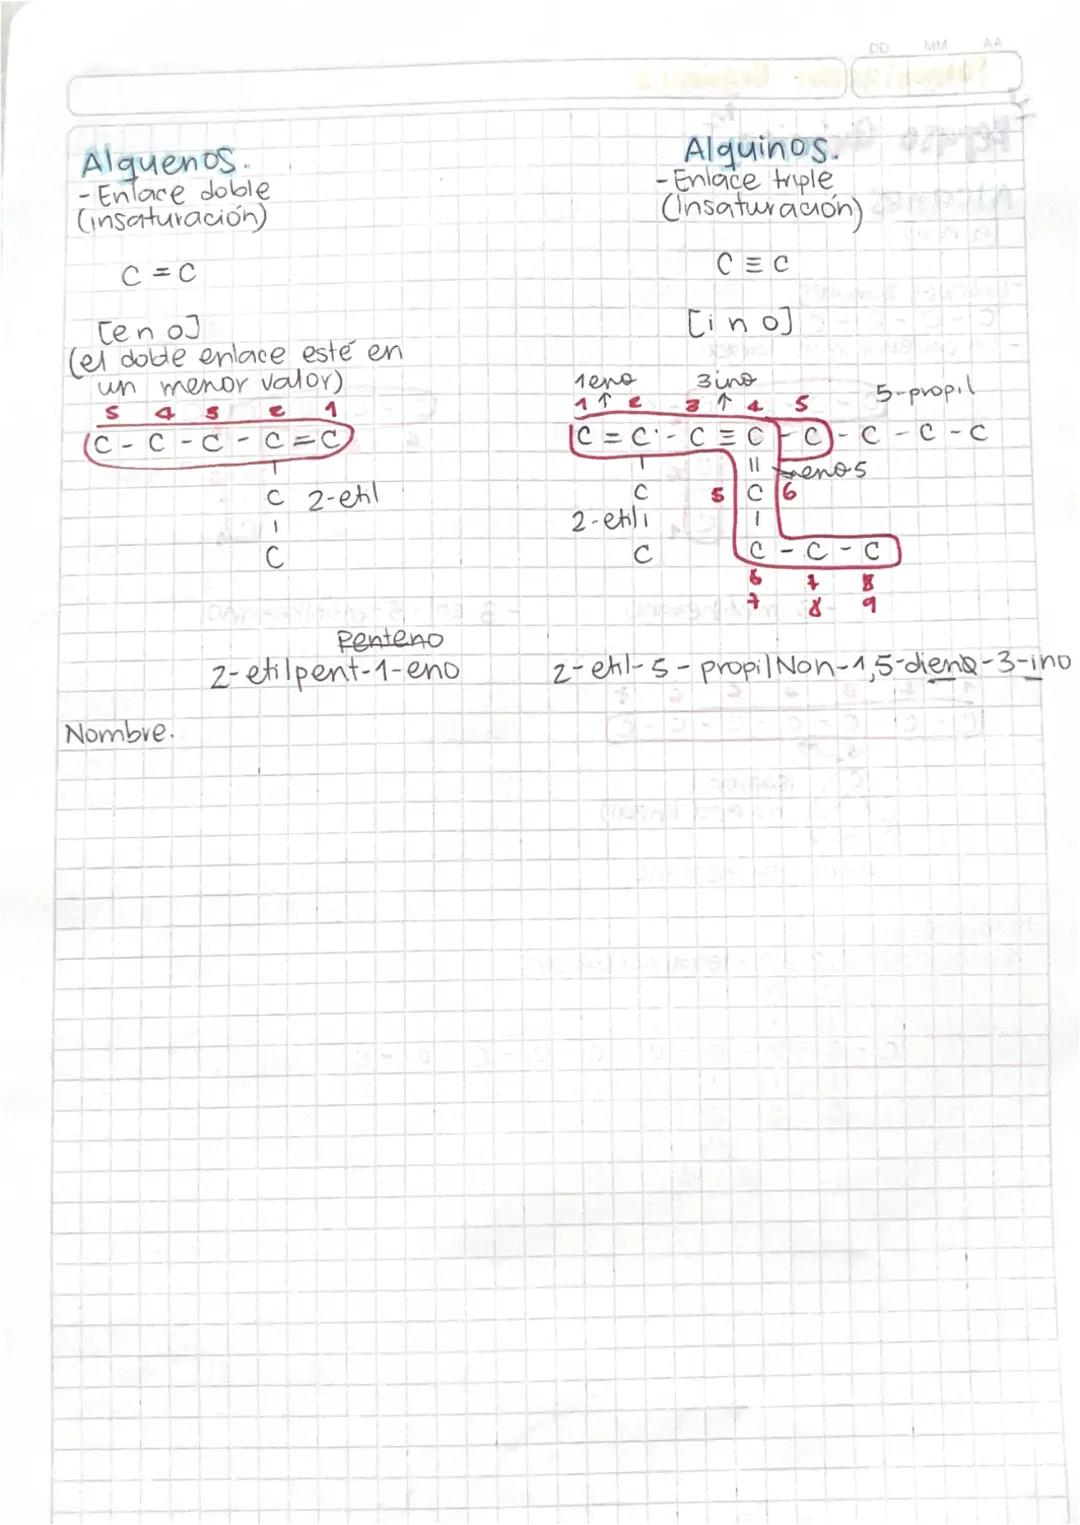 DD MM AA
Alquenos.
- Enlace doble
(insaturación)
C = C
[eno]
(el doble enlace esté en
un menor valor)
5 4 3 2 1
C - C - C - C = C
C 2-etil
C
Penteno
2-etilpent-1-eno
Nombre.
Alquinos.
- Enlace triple
(Insaturación)
C ≡ C
[ino]
1eno 3ino
5-propil
1 ↑ 2 3 ↑ 4 5
C = C - C ≡ C - C - C - C - C
eno 5
C 5 C 6
2-etil
C C - C - C
6 7 8
7 8 9
2-etil-5-propilNon-1,5-dieno-3-ino